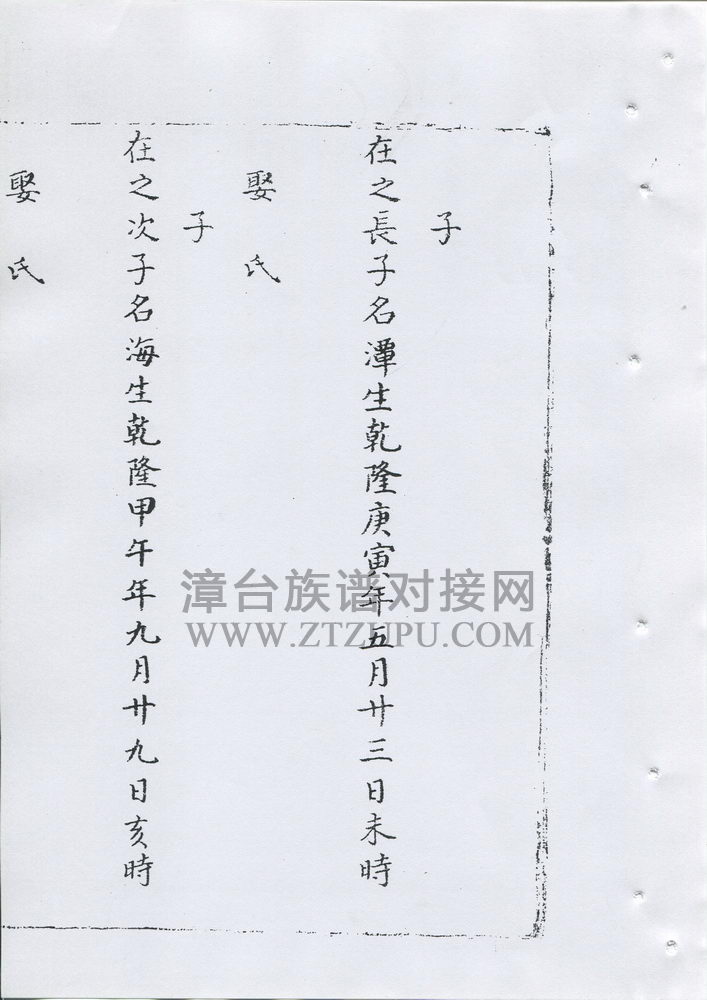 子
在之長子名潭生乾隆庚寅年五月廿三日未時
娶氏
子
在之次子名海生乾隆甲午年九月廿九日亥時
娶氏
漳台族谱对接网
WWW.ZTZUPU.COM